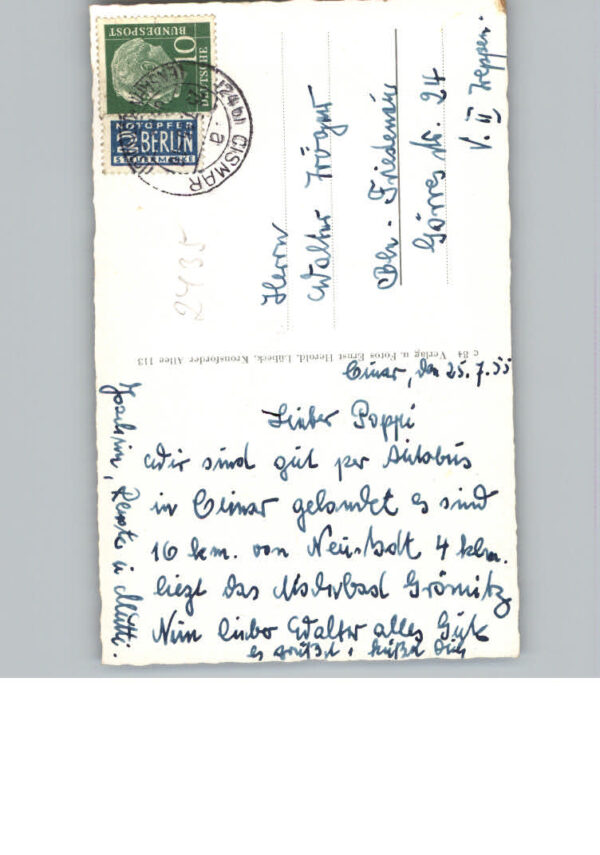 DEUTSCHE
BUNDESPOST
10
NOTOPFER
2 BERLIN
STEUERMARKE
(24b) CISMAR
a
2435
Herrn
Walter
Bln - Friedenau
Görres Str. 24
V. II Treppen.
c 64 Verlag u. Fotos Ernst Herold, Lübeck, Kronsforder Allee 113
Cismar, den 25.7.55
Lieber Pappi
Wir sind gut per Autobus
in Cismar gelandet es sind
16 km. von Neustadt 4 klm.
liegt das Grömitz
Nun lieber Walter alles Gute
es grüßt u küßt Dich
Joachim, Renate u Mutti.